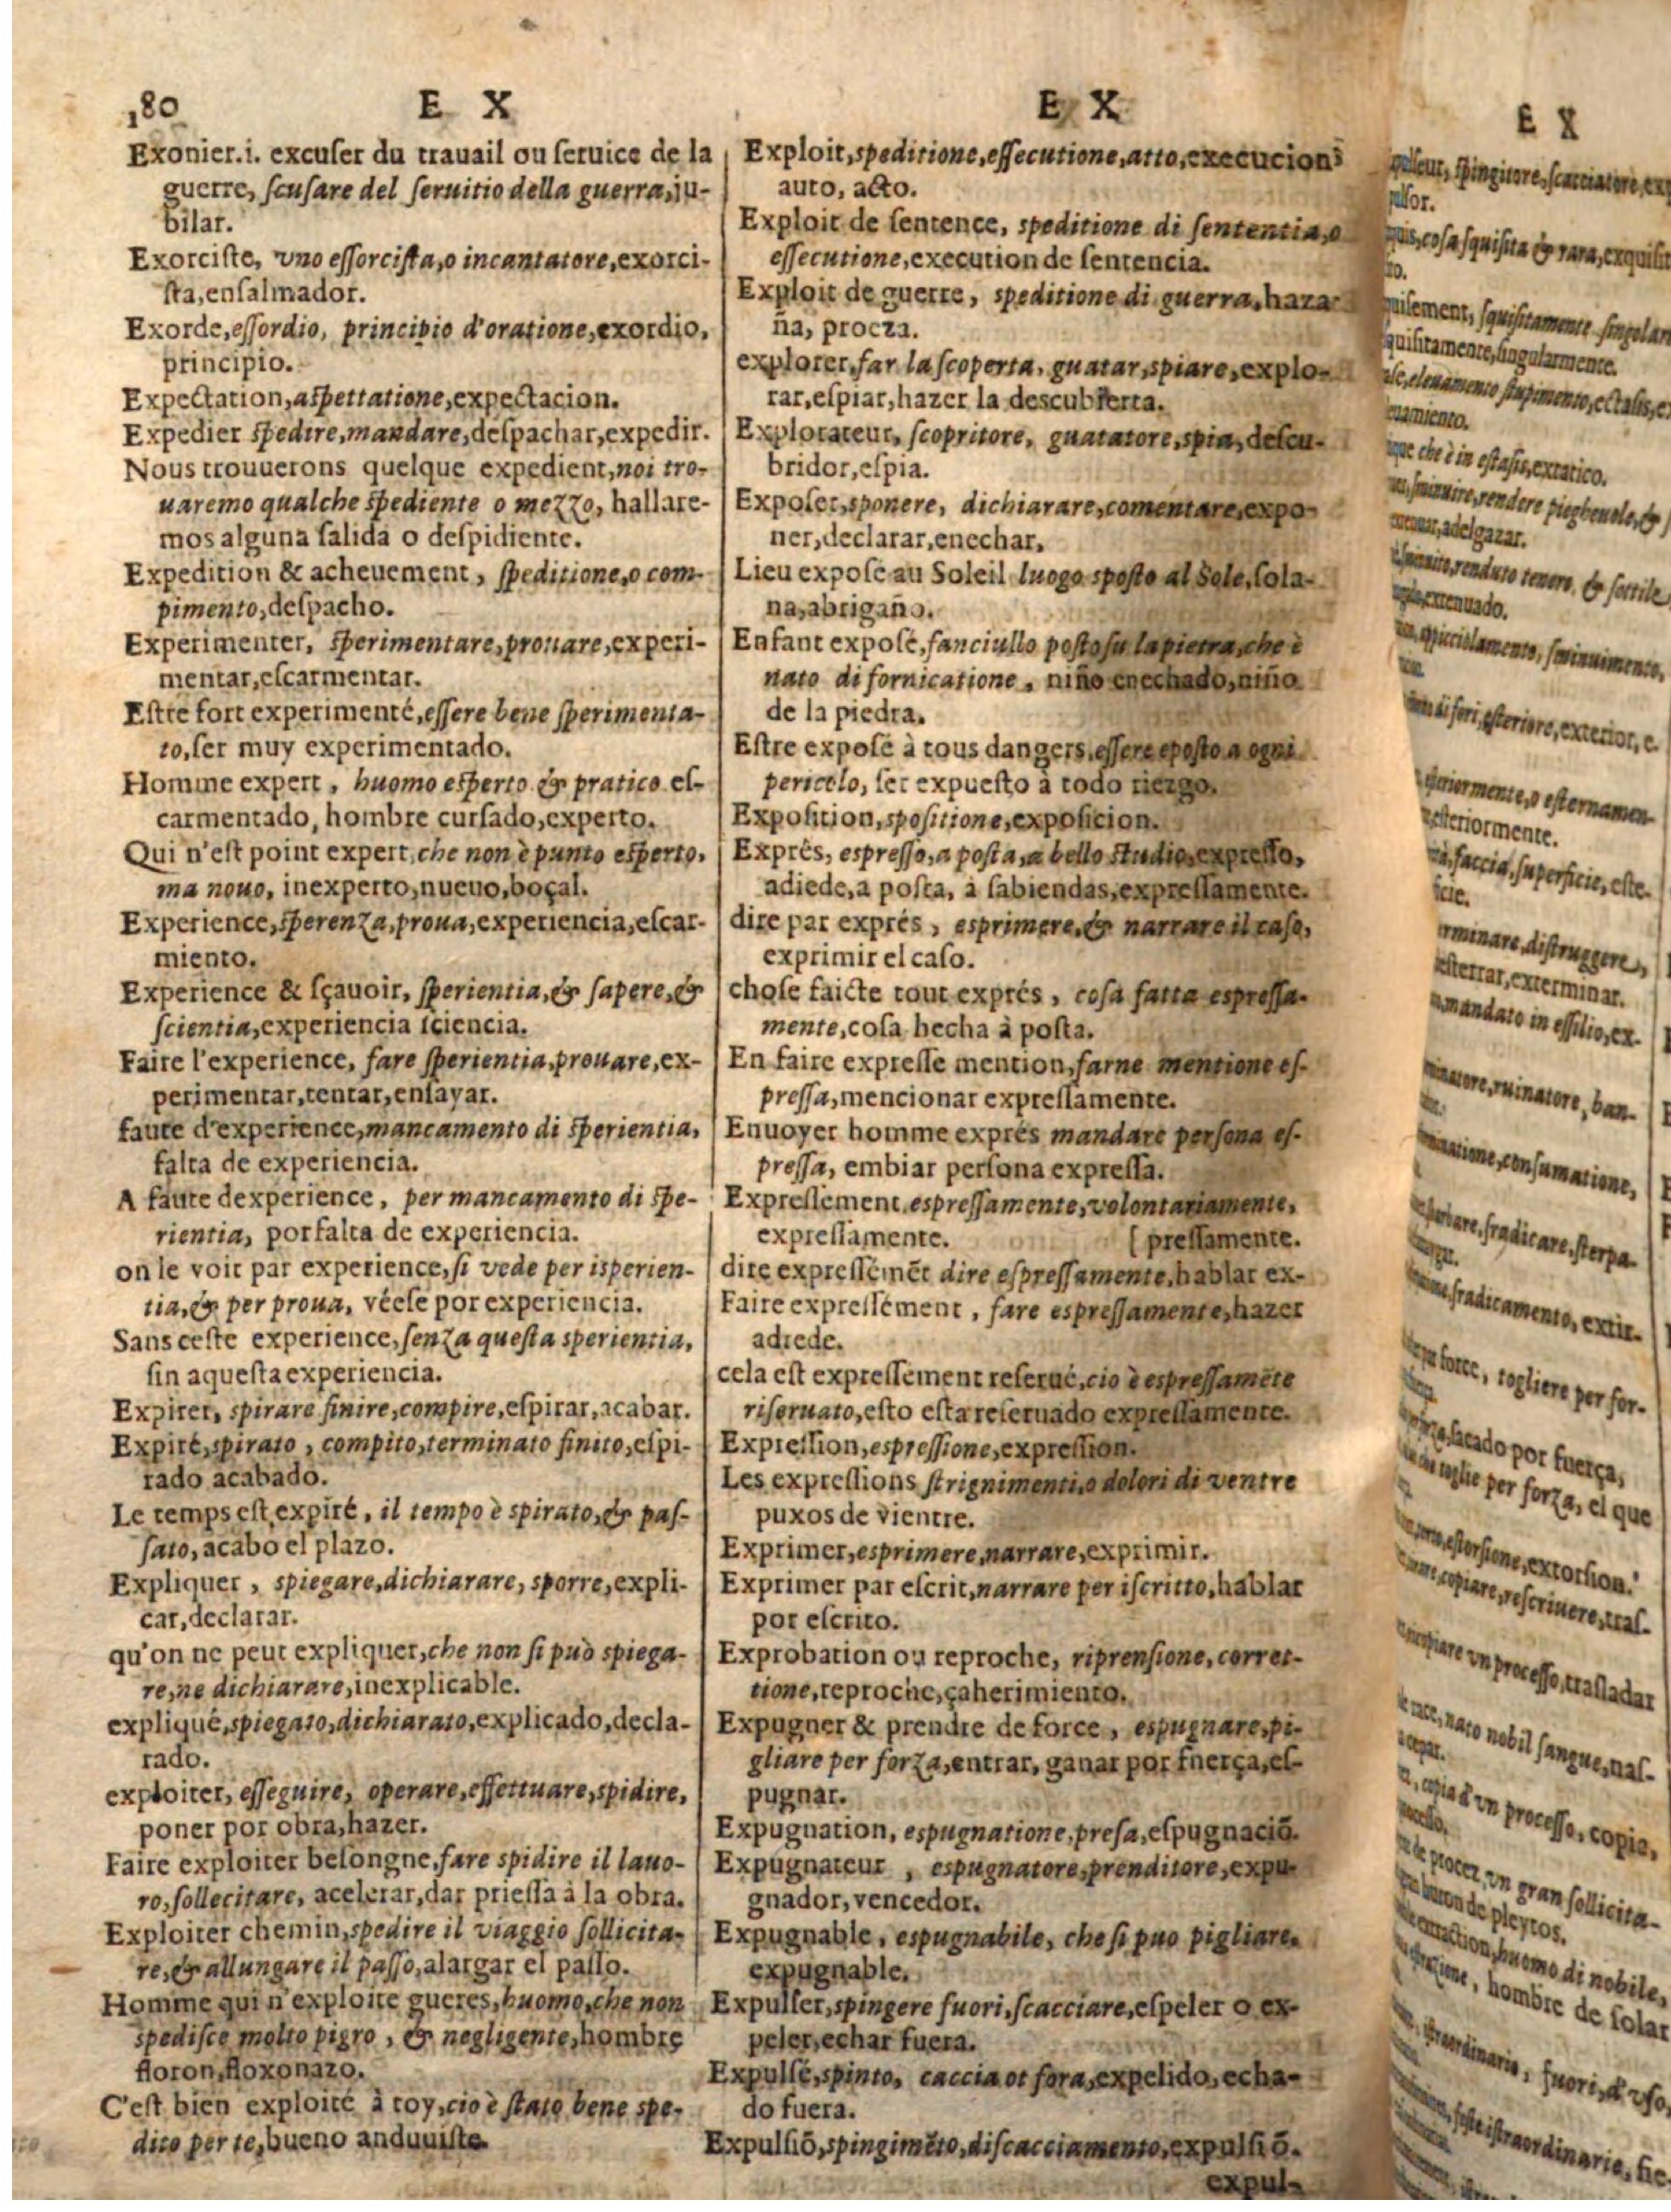 180 E X
Exonier.i. excuſer du trauail ou ſeruice de la
guerre, ſcuſare del ſeruitio della guerra, ju-
bilar.
Exorciſte, vno eſſorciſta,o incantatore,exorci-
ſta,enſalmador.
Exorde,eſſordio, principio d'oratione,exordio,
principio.
Expectation,aſpettatione,expectacion.
Expedier ſpedire,mandare,deſpachar,expedir.
Nous trouuerons quelque expedient,noi tro-
uaremo qualche ſpediente o mezzo, hallare-
mos alguna ſalida o deſpidiente.
Expedition & acheuement, ſpeditione,o com-
pimento,deſpacho.
Experimenter, ſperimentare,prouare,experi-
mentar,eſcarmentar.
Eſtre fort experimenté,eſſere bene ſperimenta-
to,ſer muy experimentado.
Homme expert, huomo eſperto & pratico eſ-
carmentado, hombre curſado,experto.
Qui n'eſt point expert,che non è punto eſperto,
ma nouo, inexperto,nueuo,boçal.
Experience,ſperenza,proua,experiencia,eſcar-
miento.
Experience & ſçauoir, ſperientia,& ſapere,&
ſcientia,experiencia ſciencia.
Faire l'experience, fare ſperientia,prouare,ex-
perimentar,tentar,enſayar.
faute d'experience,mancamento di ſperientia,
falta de experiencia.
A faute dexperience, per mancamento di ſpe-
rientia, por falta de experiencia.
on le voit par experience,ſi vede per isperien-
tia,& per proua, véeſe por experiencia.
Sans ceſte experience,ſenza queſta sperientia,
ſin aqueſta experiencia.
Expirer, spirare finire,compire,eſpirar,acabar.
Expiré,spirato, compito,terminato finito,eſpi-
rado acabado.
Le temps eſt expiré, il tempo è spirato,& paſ-
ſato,acabo el plazo.
Expliquer, spiegare,dichiarare, sporre,expli-
car,declarar.
qu'on ne peut expliquer,che non ſi può spiega-
re,ne dichiarare,inexplicable.
expliqué,spiegato,dichiarato,explicado,decla-
rado.
exploiter, eſſeguire, operare,effettuare,spidire,
poner por obra,hazer.
Faire exploiter beſongne,fare spidire il lauo-
ro,ſollecitare, acelerar,dar prieſſa à la obra.
Exploiter chemin,spedire il viaggio ſollicita-
re,& allungare il paſſo,alargar el paſſo.
Homme qui n'exploite gueres,huomo,che non
spediſce molto pigro, & negligente,hombre
floron,floxonazo.
C'eſt bien exploité à toy,cio è ſtato bene spe-
dito per te,bueno anduuiſte.
E X
Exploit,speditione,eſſecutione,atto,execucion
auto, acto.
Exploit de ſentence, speditione di ſententia,o
eſſecutione,execution de ſentencia.
Exploit de guerre, speditione di guerra,haza-
ña, proeza.
explorer,far la ſcoperta, guatar,spiare,explo-
rar,eſpiar,hazer la descubierta.
Explorateur, ſcopritore, guatatore,spia,deſcu-
bridor,eſpia.
Expoſer,sponere, dichiarare,comentare,expo-
ner,declarar,enechar,
Lieu expoſé au Soleil luogo sposto al Sole,ſola-
na,abrigaño.
Enfant expoſé,fanciullo poſto ſu la pietra,che è
nato di fornicatione, niño enechado,niño
de la piedra.
Eſtre expoſé à tous dangers,eſſere eposto a ogni
pericolo, ſer expueſto à todo riezgo.
Expoſition,spoſitione,expoſicion.
Exprés, espreſſo,a poſta,a bello ſtudio,expreſſo,
adiede,a poſta, à ſabiendas,expreſſamente.
dire par exprés, esprimere,& narrare il caſo,
exprimir el caſo.
choſe faicte tout exprés, coſa fatta espreſſa-
mente,coſa hecha à poſta.
En faire expreſſe mention,farne mentione eſ-
preſſa,mencionar expreſſamente.
Enuoyer homme exprés mandare perſona eſ-
preſſa, embiar perſona expreſſa.
Expreſſement,espreſſamente,volontariamente,
expreſſamente. [preſſamente.
dire expreſſemẽt dire eſpreſſamente,hablar ex-
Faire expreſſément, fare espreſſamente,hazer
adrede.
cela eſt expreſſement reſerué,cio è espreſſamẽte
riſeruato,eſto eſta reſeruado expreſſamente.
Expreſſion,espreſſione,expreſſion.
Les expreſſions ſtrignimenti,o dolori di ventre
puxos de vientre.
Exprimer,esprimere,narrare,exprimir.
Exprimer par eſcrit,narrare per iſcritto,hablar
por eſcrito.
Exprobation ou reproche, riprenſione, corret-
tione,reproche,çaherimiento.
Expugner & prendre de force, espugnare,pi-
gliare per forza,entrar, ganar por fuerça,eſ-
pugnar.
Expugnation, espugnatione,preſa,eſpugnaciõ.
Expugnateur, espugnatore,prenditore,expu-
gnador,vencedor.
Expugnable, espugnabile, che ſi puo pigliare,
expugnable.
Expulſer,spingere fuori,ſcacciare,eſpeler o ex-
peler,echar fuera.
Expulſé,spinto, caccia ot fora,expelido,echa-
do fuera.
Expulſiõ,spingimẽto,diſcacciamento,expulſiõ.
expul-
E X
ſpingitore,ſcacciatore,
coſa ſquiſita & rara,
ſquiſitamente
ſingularmente.
che è in eſtaſis,extatico.
rendere piegheuole,&
adelgazar.
extenuado.
exterior, e-
eſternamen-
faccia,ſuperficie,
erminare,diſtruggere,
exterminar.
mandato in eſſilio,ex-
ruinatore, ban-
conſumatione,
ſradicare,ſterpa-
ſradicamento, extir-
force, togliere per for-
ſacado por fuerça,
toglie per forza, el que
extorſion.
copiare,reſcriuere,traſ-
vn proceſſo,traſladar
race,nato nobil ſangue,naſ-
copia d'vn proceſſo, copia,
vn gran ſollicita-
de pleytos.
huomo di nobile,
hombre de ſolar
fuori,d'vſo,
iſtraordinarie, fie-